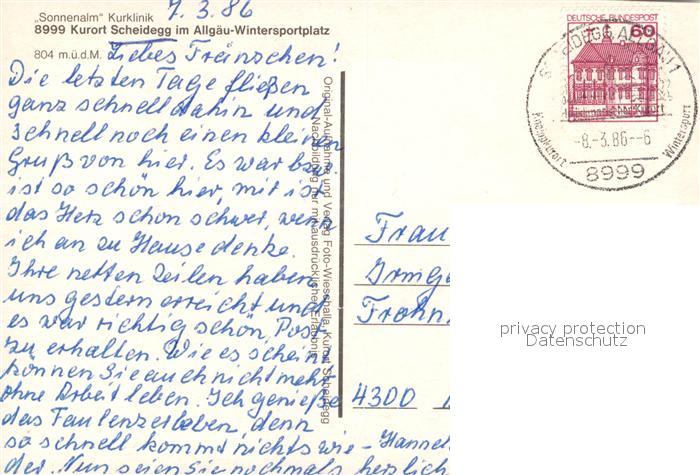 7. 3. 86
„Sonnenalm" Kurklinik
8999 Kurort Scheidegg im Allgäu-Wintersportplatz
804 m.ü.d.M.
Liebes Fränzchen!
Die letzten Tage fließen
ganz schnell dahin und
schnell noch einen kleinen
Gruß von hier. Es war bzw.
ist so schön hier, mir ist
das Herz schon schwer, wenn
ich an zu Hause denke.
Ihre netten Zeilen haben
uns gestern erreicht und
es war richtig schön, Post
zu erhalten. Wie es scheint
können Sie auch nicht mehr
ohne Arbeit leben. Ich genieße
das Faulenzerleben, denn
so schnell kommt nichts wie-
der. Nun seien Sie nochmals herzlich
Hannel
Original-Aufnahme und Verlag Foto-Wiesshalla, Kurort Scheidegg
Nachbildung nur mit ausdrücklicher Erlaubnis
DEUTSCHE BUNDESPOST
60
SCHEIDEGG, ALLGÄU 1
-8.-3.86--6
Kneippkurort
Wintersport
8999
Frau
Irmga
Frohn
4300
privacy protection
Datenschutz